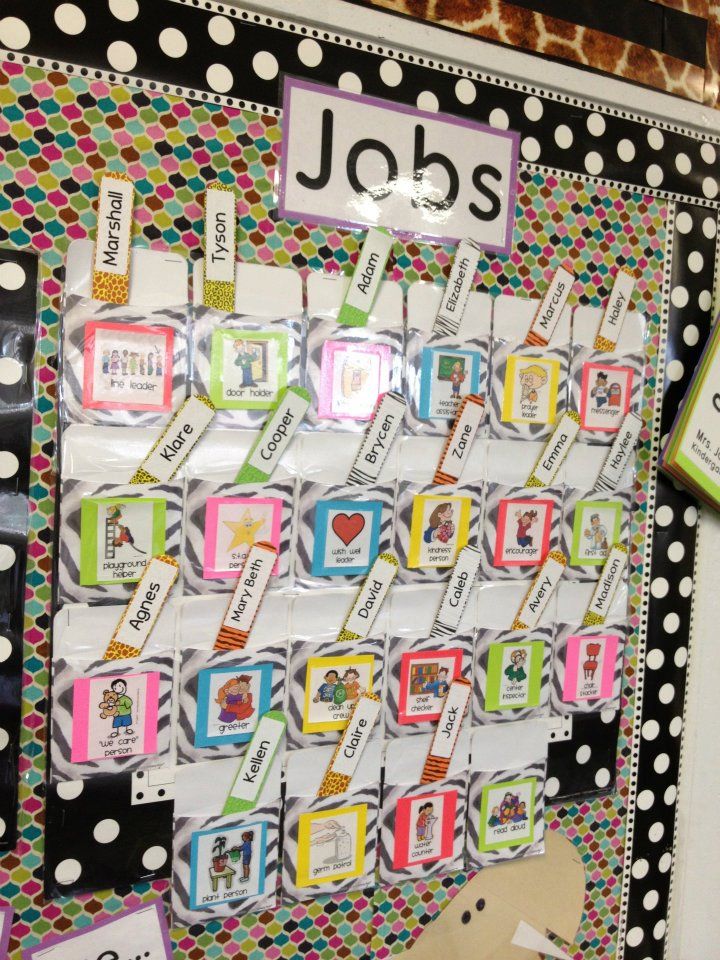 Jobs
Marshall
Tyson
Adam
Elizabeth
Marcus
Haley
line leader
door holder
teacher
assistant
prayer
leader
messenger
Klare
Cooper
Brycen
Zane
Emma
Haylee
playground
helper
star
person
wish well
leader
kindness
person
encourager
first aid
Agnes
Mary Beth
David
Caleb
Avery
Madison
"we care"
person
greeter
clean up
crew
shelf
checker
center
inspector
chair
stacker
Kellen
Claire
Jack
plant person
germ patrol
water
counter
read aloud